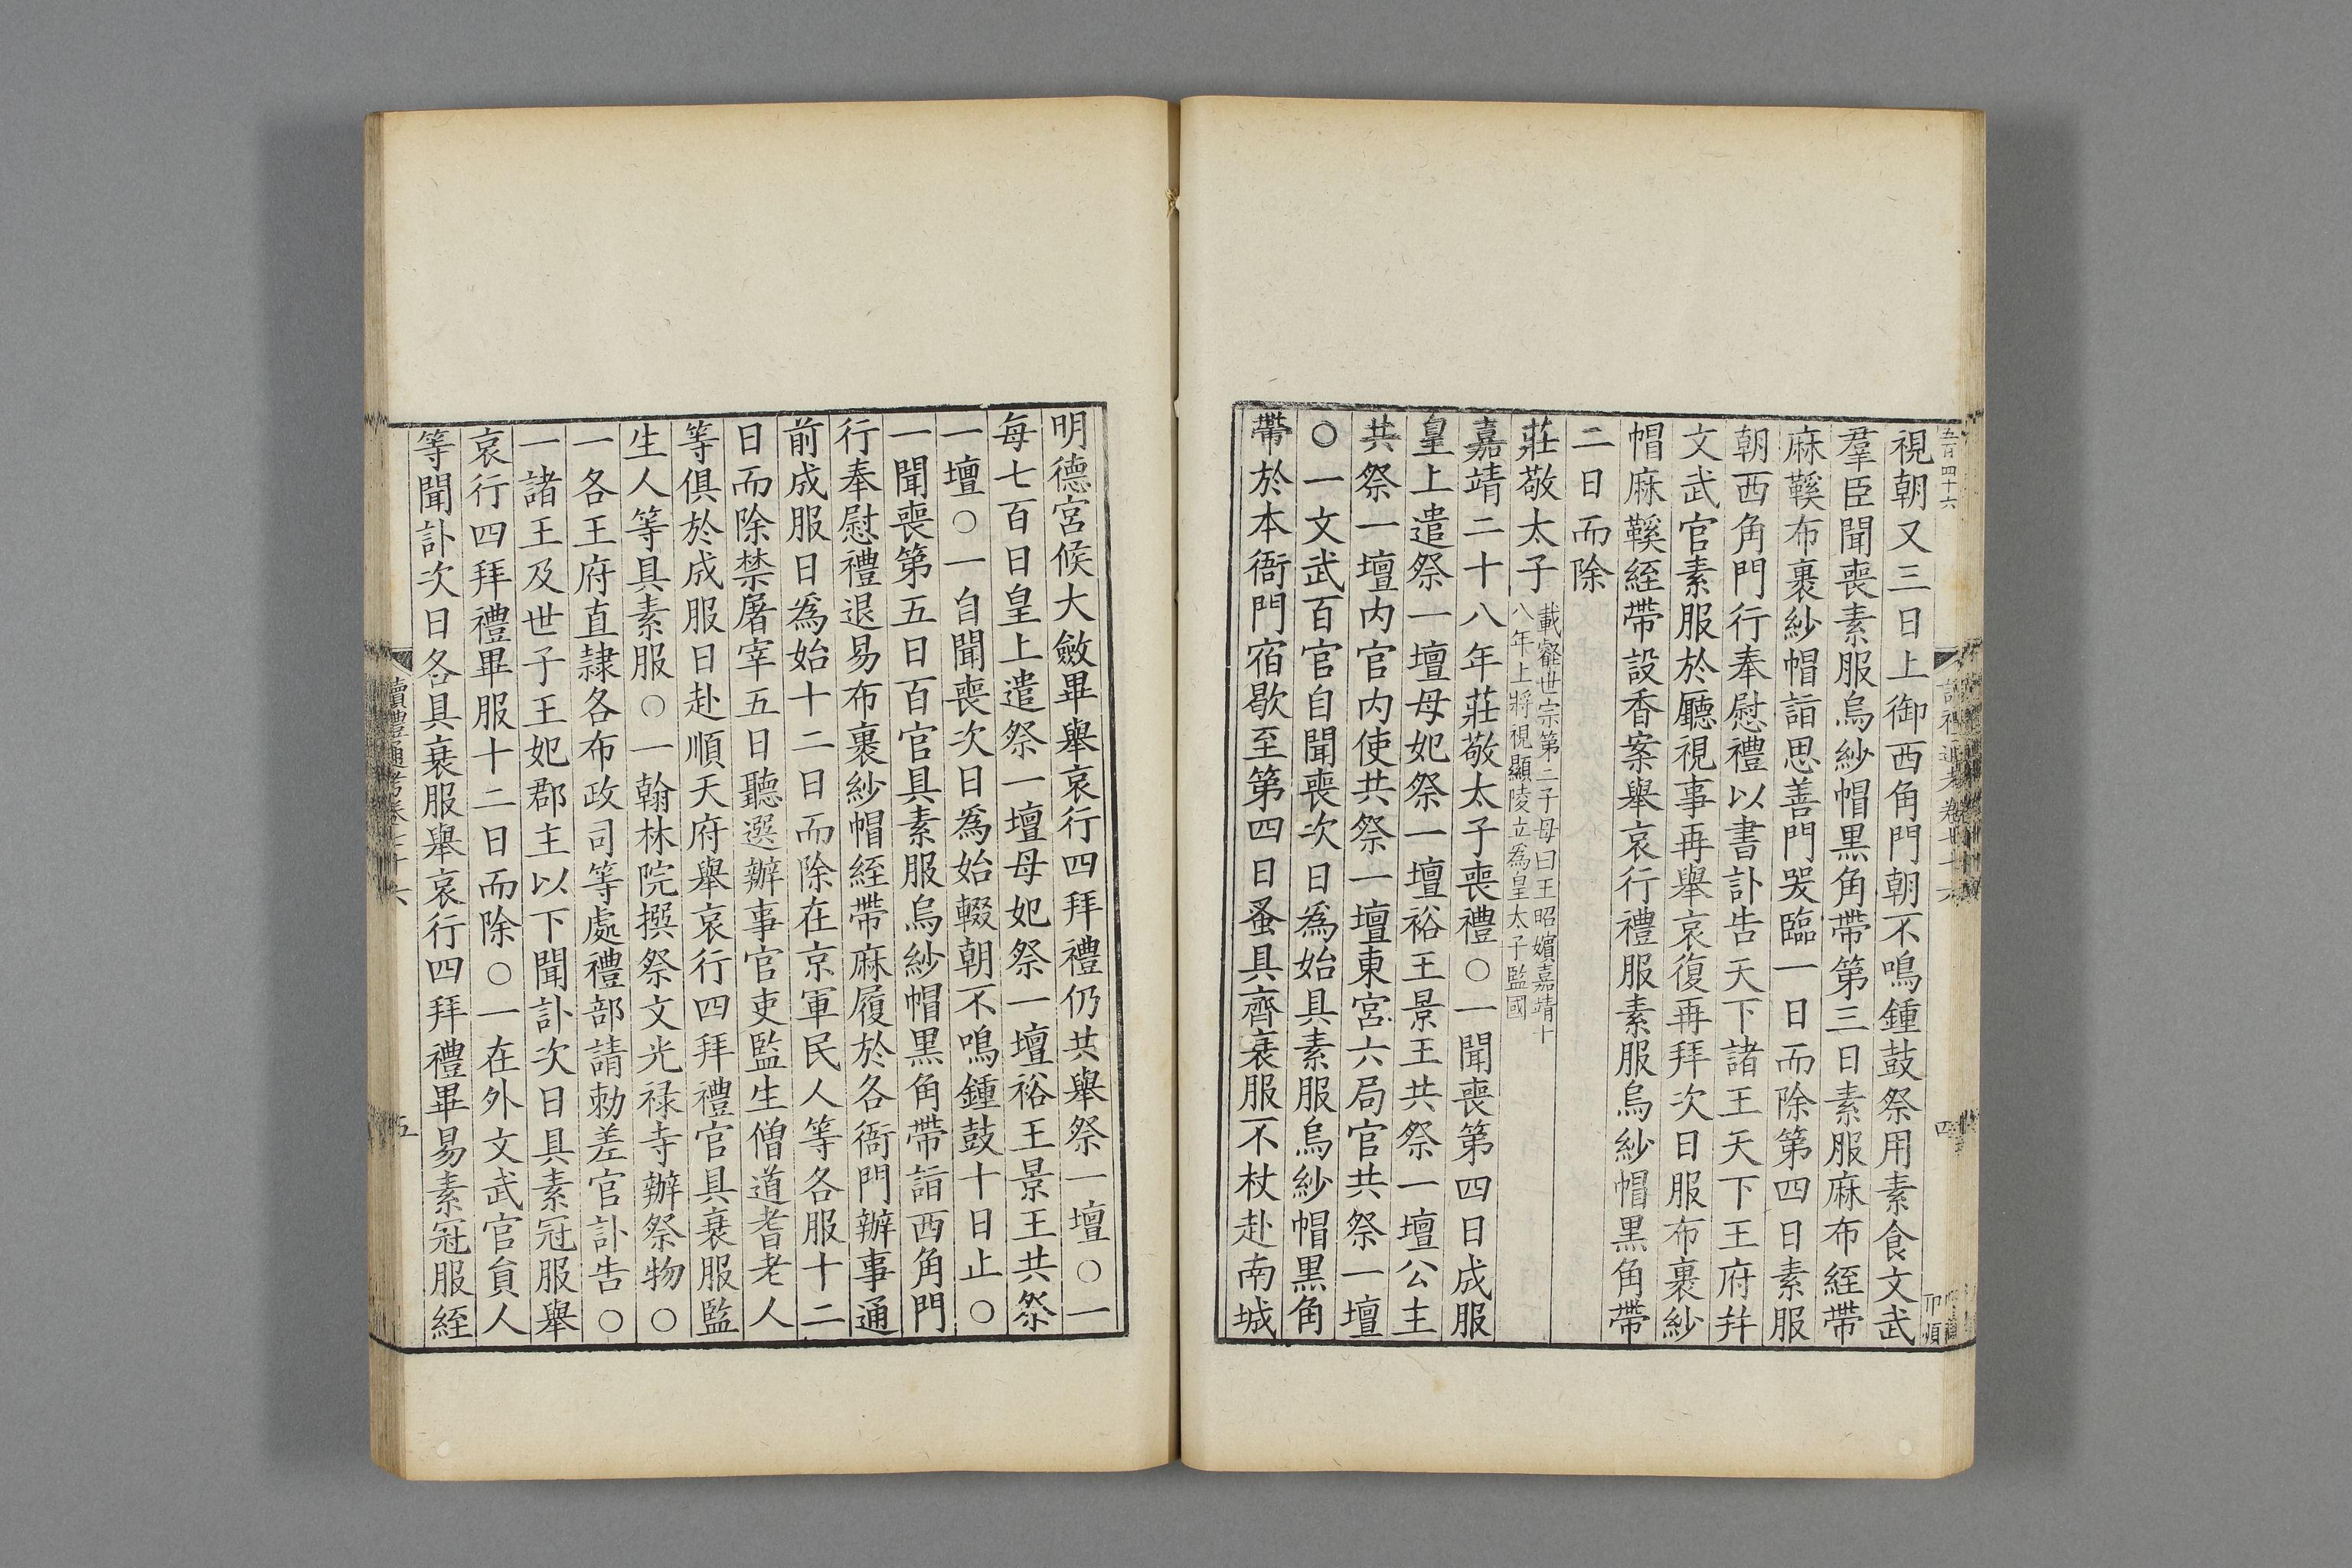 五百四十六
視朝又三日上御西角門朝不鳴鍾鼓祭用素食文武
羣臣聞喪素服烏紗帽黑角帶第三日素服麻布絰帶
麻鞵布裹紗帽詣思善門哭臨一日而除第四日素服
朝西角門行奉慰禮以書訃告天下諸王天下王府幷
文武官素服於廳視事再舉哀復再拜次日服布裹紗
帽麻鞵絰帶設香案舉哀行禮服素服烏紗帽黑角帶
二日而除
莊敬太子
載壡世宗第二子母曰王昭嬪嘉靖十
八年上將視顯陵立爲皇太子監國
嘉靖二十八年莊敬太子喪禮○一聞喪第四日成服
皇上遣祭一壇母妃祭一壇裕王景王共祭一壇公主
共祭一壇内官内使共祭一壇東宮六局官共祭一壇
○一文武百官自聞喪次日爲始具素服烏紗帽黑角
帶於本衙門宿歇至第四日蚤具齊衰服不杖赴南城
四
明德宮候大斂畢舉哀行四拜禮仍共舉祭一壇○一
每七百日皇上遣祭一壇母妃祭一壇裕王景王共祭
一壇○一自聞喪次日爲始輟朝不鳴鍾鼓十日止○
一聞喪第五日百官具素服烏紗帽黑角帶詣西角門
行奉慰禮退易布裹紗帽絰帶麻履於各衙門辦事通
前成服日爲始十二日而除在京軍民人等各服十二
日而除禁屠宰五日聽選辦事官吏監生僧道耆老人
等俱於成服日赴順天府舉哀行四拜禮官具衰服監
生人等具素服○一翰林院撰祭文光禄寺辦祭物○
一各王府直隸各布政司等處禮部請勅差官訃告○
一諸王及世子王妃郡主以下聞訃次日具素冠服舉
哀行四拜禮畢服十二日而除○一在外文武官員人
等聞訃次日各具衰服舉哀行四拜禮畢易素冠服絰
讀禮通考卷七十六
五